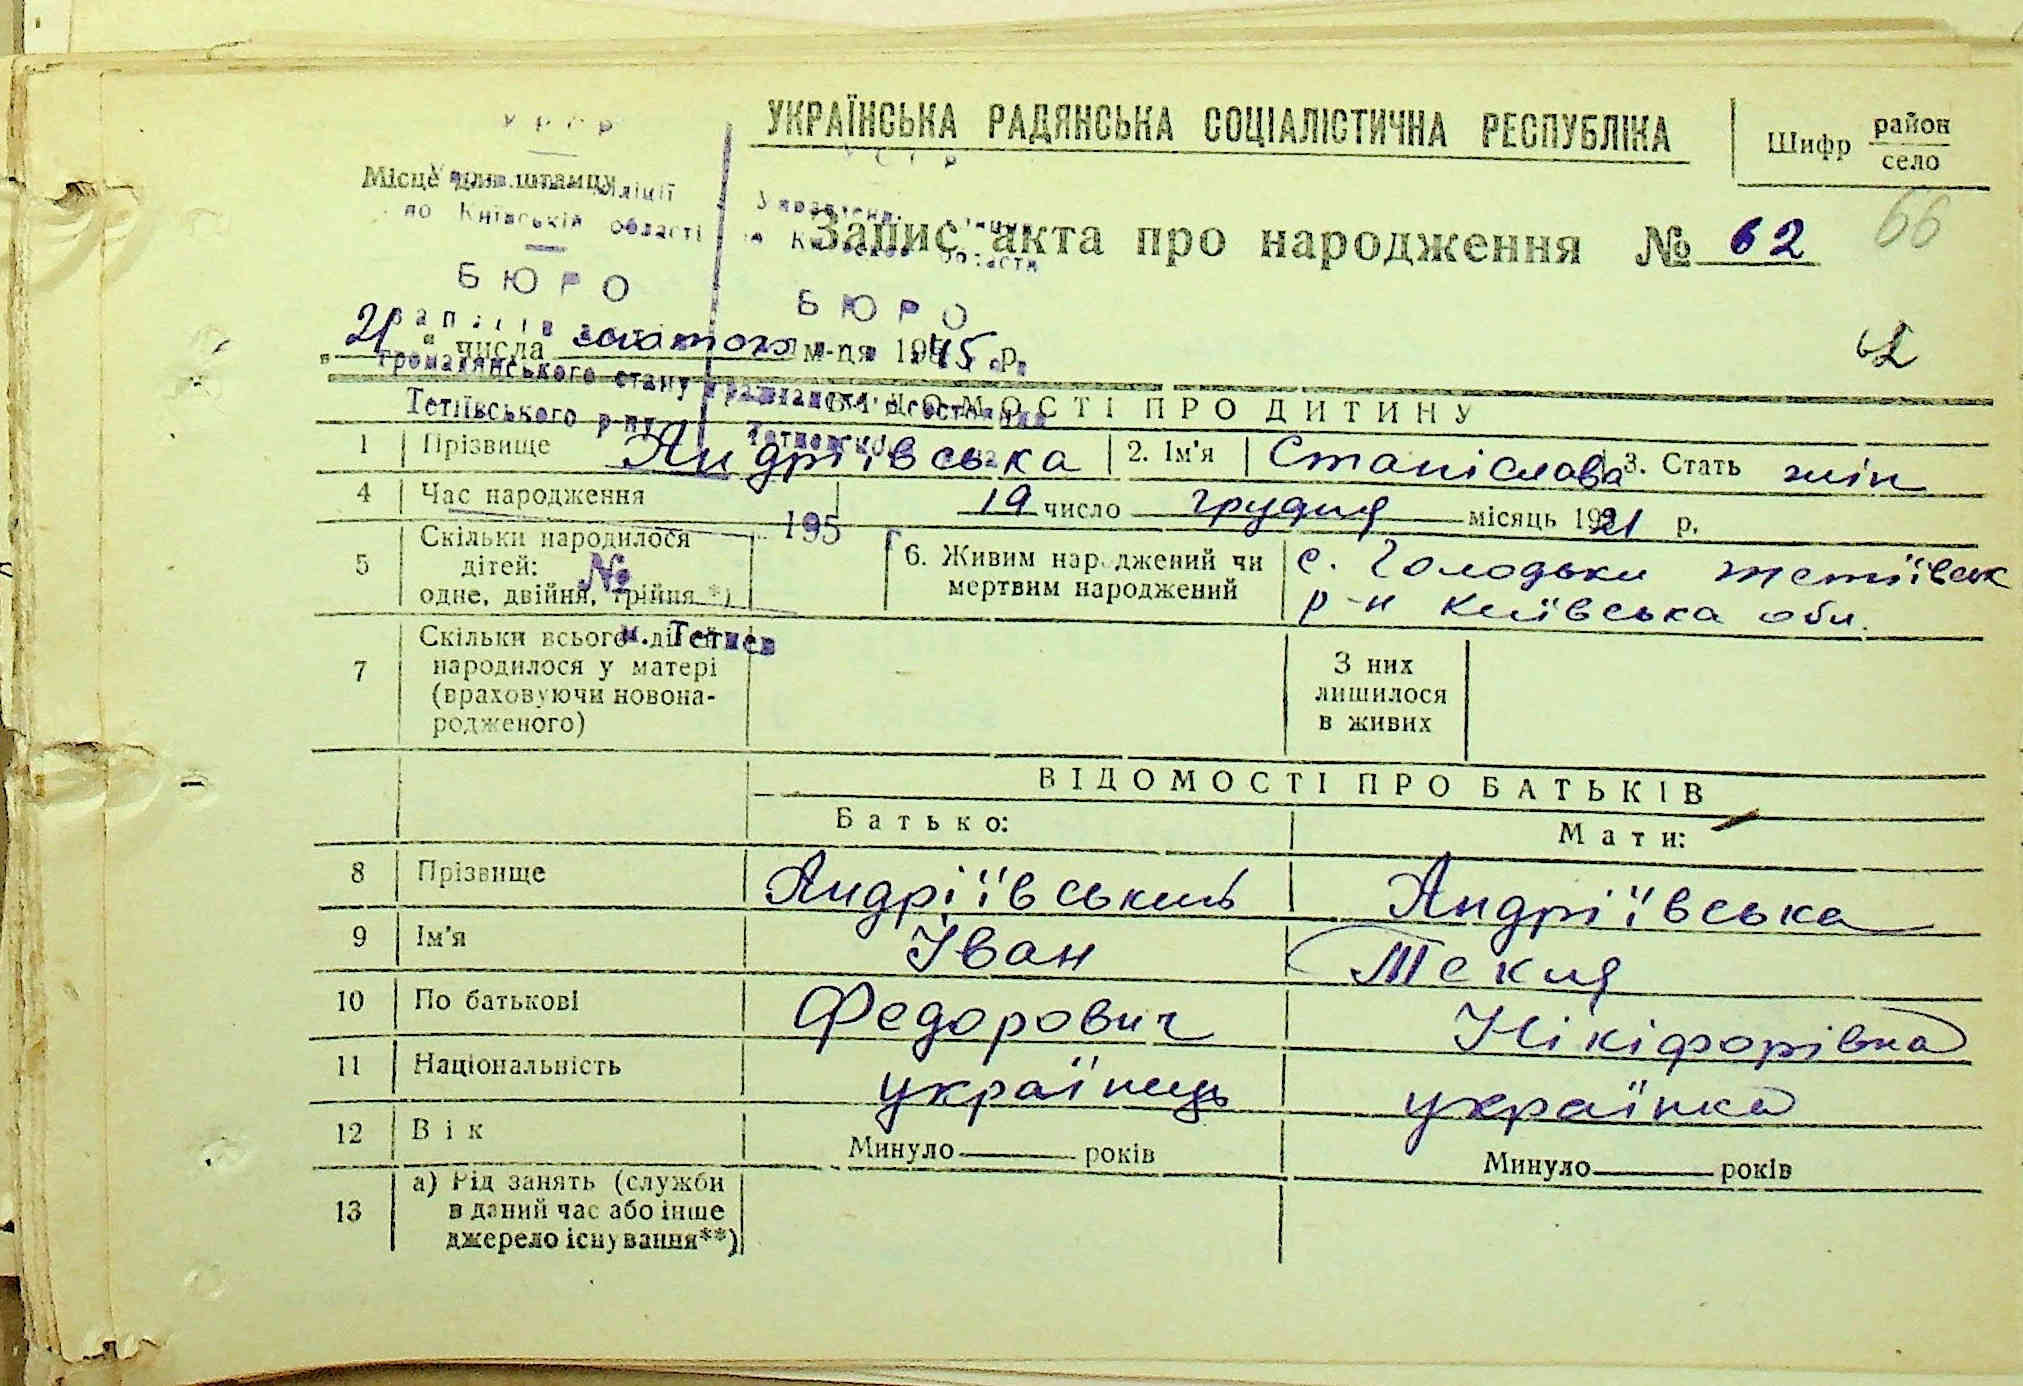 УКРАЇНСЬКА РАДЯНСЬКА СОЦІАЛІСТИЧНА РЕСПУБЛІКА
Шифр район
село
УРСР
УССР
Місце для штампу
по Київській області
Запис акта про народження № 62
66
БЮРО
БЮРО
„21“ числа лютого м-ця 1945 р.
62
громадянського стану
Тетіївського р-ну
ВІДОМОСТІ ПРО ДИТИНУ
1 Прізвище Андріївська 2. Ім'я Станіслава 3. Стать жін
4 Час народження 19 число грудня місяць 1921 р.
195
5 Скільки народилося
дітей:
одне, двійня, трійня *)
№
6. Живим народжений чи
мертвим народжений
с. Голодьки Тетіївськ
р-н Київська обл.
м. Тетиев
7 Скільки всього дітей
народилося у матері
(враховуючи новона-
родженого)
З них
лишилося
в живих
ВІДОМОСТІ ПРО БАТЬКІВ
Батько: Мати:
8 Прізвище Андріївський Андріївська
9 Ім'я Іван Текля
10 По батькові Федорович Нікіфорівна
11 Національність українець українка
12 Вік Минуло років Минуло років
13 а) Рід занять (служби
в даний час або інше
джерело існування**)